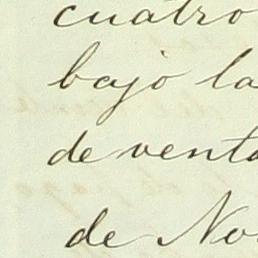 cuatro
bajo la
de venta
de No